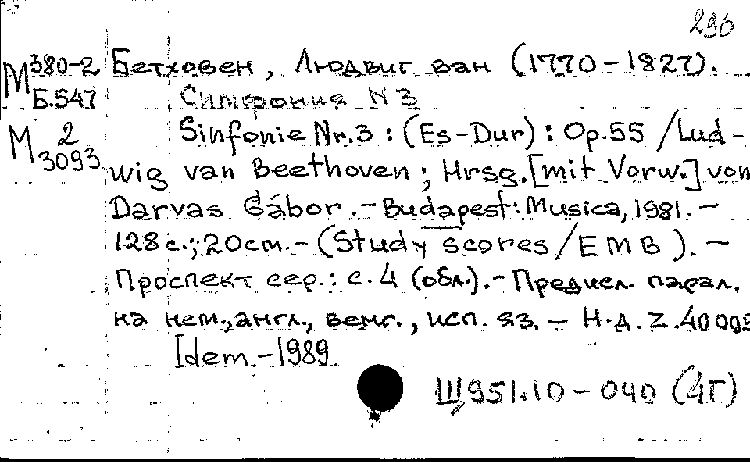 296
М380-2 Бетховен, Людвиг ван (1770-1827).
Б.547 Симфония N 3
М 2 Sinfonie Nr.3 : (Es-Dur) : Op.55 / Lud-
3093 wig van Beethoven ; Hrsg. [mit Vorw.] von
Darvas Gábor. - Budapest : Musica, 1981. -
128 с.; 20 cm. - (Study scores / EMB). -
Проспект сер.: с. 4 (обл.). - Предисл. парал.
на нем., англ., венг., исп. яз. - Н.д. Z. 40 009
Idem. - 1989
Щ951.10-040 (4Г)